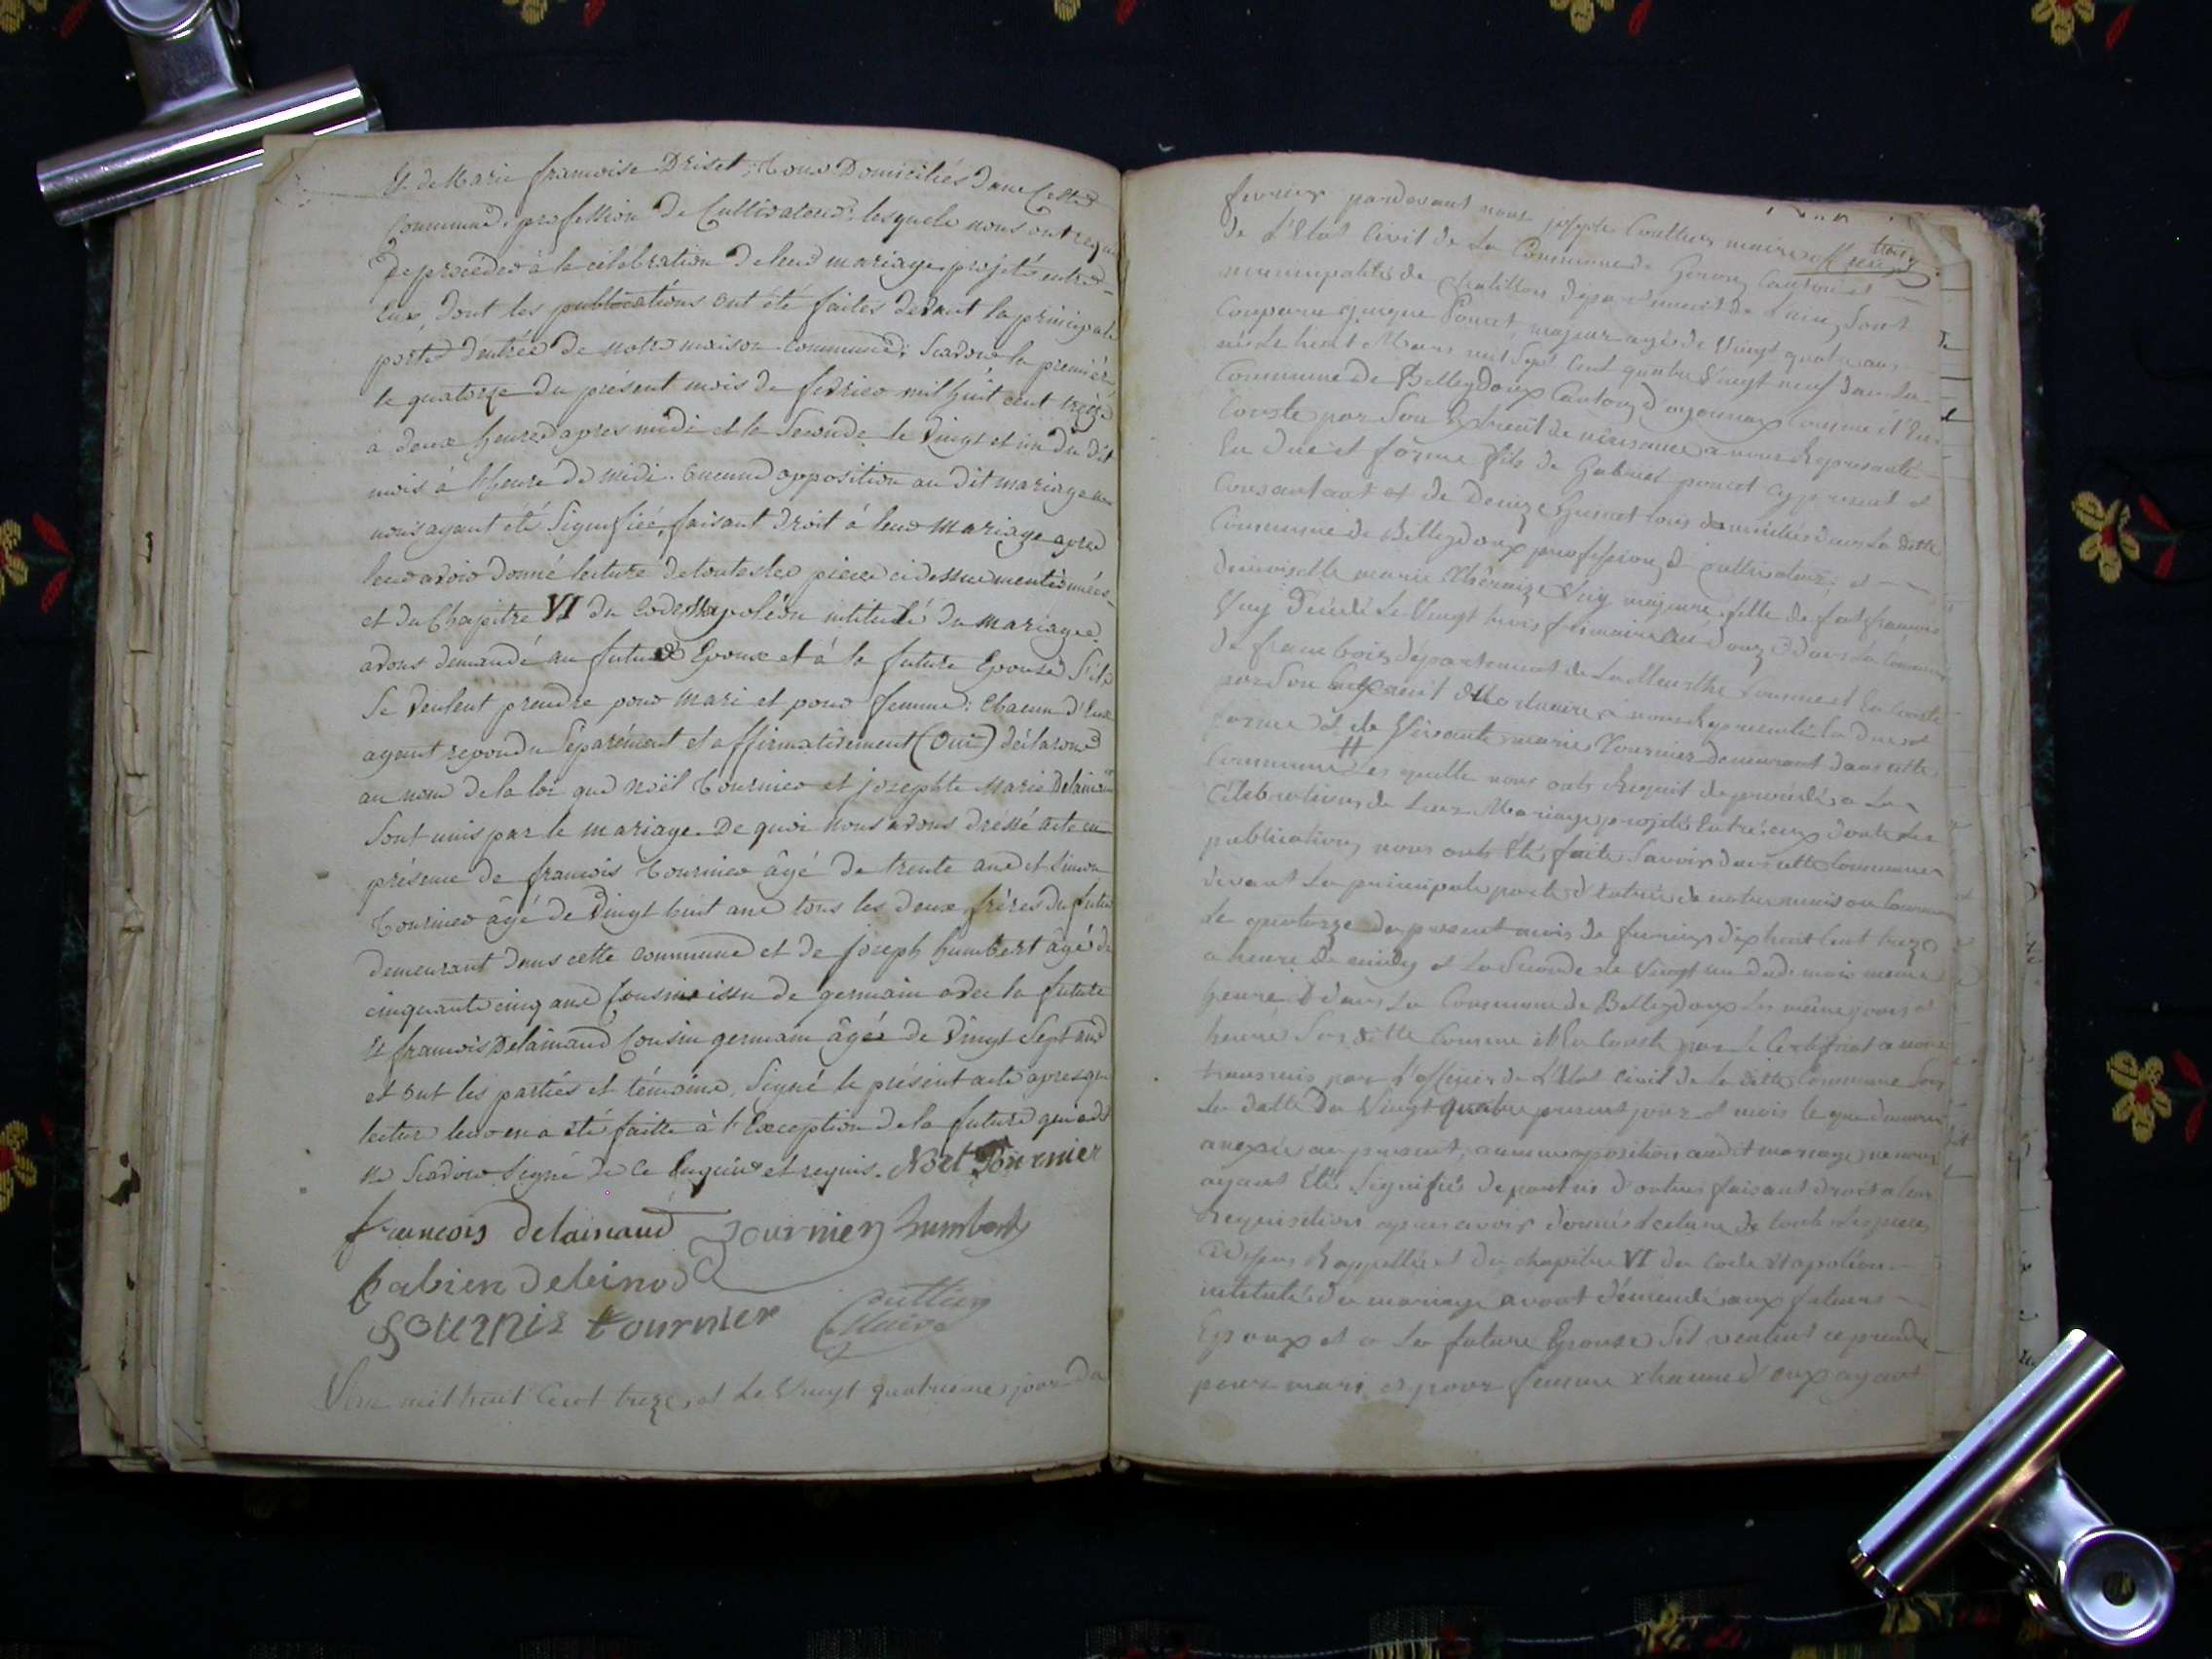 Et de Marie francoise Driset, tous Domiciliés dans Cette
Commune, profession de Cultivateurs lesquels nous ont requis
De proceder à la célébration de leur mariage projeté entre
Eux, dont les publications ont été faites devant la principale
porte d'entrée de notre maison commune; Scavoir la première
le quatorze du présent mois de fevrier mil huit cent treize
a deux heures apres midi et la Seconde le Vingt et un du dit
mois à l'heure de midi. aucune opposition au dit mariage ne
nous ayant été Signifiée, faisant droit à leur mariage apres
leur avoir donné lecture de toutes les pieces ci dessus mentionnées
et du Chapitre VI du Code Napoléon intitulé du mariage
avons demandé au futur Epoux et à la future Epouse S'ils
Se veulent prendre pour mari et pour femme: Chacun d'Eux
ayant repondu Séparément et affirmativement (Oui) déclarons
au nom de la loi que Noël tournier et josephte Marie Delainaud
Sont unis par le mariage. De quoi nous avons dressé acte en
présence de francois tournier âgé de trente ans et Simon
tournier âgé de Vingt huit ans tous les deux frères du futur
demeurant dans cette commune et de joseph humbert âgé de
cinquante cinq ans Cousin issu de germain avec la future
Et francois Delainaud Cousin germain âgé de Vingt Sept ans
et ont les parties et témoins, Signé le présent acte apres que
lecture leur en a été faitte à l'Exception de la future qui a dit
ne Scavoir Signé de ce Enquise et requis. Noel Tournier
francois delainaud Tournier humbert
fabien deleinod
tournier Couttier
Maire
L'an mil huit Cent treze, et le Vingt quatrieme jour du
fevrier pardevant nous joseph Couttier maire officier
de L'Etat Civil de La Commune de Canton et
municipalité de Chatillon département de L'ain, Sont
Comparu Poncet, majeur agé de Vingt quatre ans
né Le huit Mars mil Sept Cent quatre Vingt neuf dans la
Commune de Belleydoux Canton d'oyonnax comme il En
Conste par Son Extrait de naissance a nous Representé
En due et forme fils de Gabriel poncet cy present et
Consentant et de Denize tous domiciliés dans La ditte
Commune de Belleydoux profession de cultivateur; et
demoiselle marie Thereize Vuy majeure fille de feu francois
Vuy Décédé Le Vingt trois frimaire an douze dans La Commune
de département de La Meurthe Comme il En Conste
par Son Extrait Mortuaire a nous Representé En due et
forme et de Vivante marie Tournier demeurant dans cette
Commune Les quelle nous onts Requit de procéder a La
Célébration de Leur Mariage projetté Entre eux dont Les
publications nous onts Été faite Savoir dans cette Commune
devant La principale porte d'Entrée de notre maison Commune
Le quatorze du present mois de fevrier dix huit Cent treze
a heure de midy et La Seconde Le Vingt un dudit mois meme
heure et dans La Commune de Belleydoux Les même jours et
heure Sus ditte Comme il En Conste par Le Certificat a nous
transmis par L'officier de L'Etat Civil de La ditte Commune Sous
La datte Du Vingt quatre present jour et mois le que demeure
anexée au present, aucune opposition audit mariage ne nous
ayant Été Signifiée de part ni d'autres faisant droit a leur
Requisition apres avoir donné Lecture de toute Les pieces
Cidessus Rappellée et du chapitre VI du Code Napoléon
intitulé du mariage avont demandé aux futurs
Epoux et a La future Epouse Sil veulent ce prendre
pour mari et pour femme chacune d'eux ayant